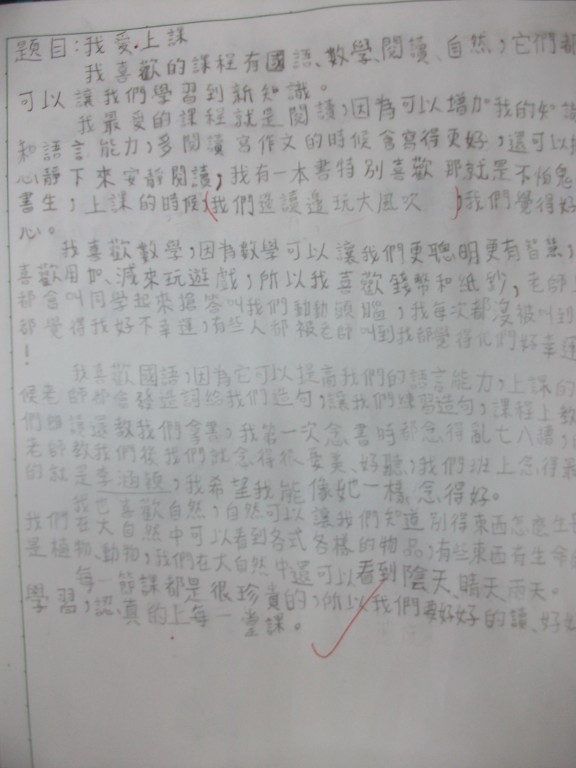 題目:我愛上課
我喜歡的課程有國語、數學、閱讀、自然,它們都
可以讓我們學習到新知識。
我最愛的課程就是閱讀,因為可以增加我的知識
和語言能力,多閱讀寫作文的時候會寫得更好,還可以
心靜下來安靜閱讀,我有一本書特別喜歡那就是不怕鬼
書生,上課的時候(我們邊讀邊玩大風吹 )我們覺得好
心。
我喜歡數學,因為數學可以讓我們更聰明更有智慧,
喜歡用加、減來玩遊戲,所以我喜歡錢幣和紙鈔,老師
都會叫同學起來搶答叫我們動動頭腦,我每次都沒被叫到
都覺得我好不幸運,有些人都被老師叫到我都覺得他們好幸運
!
我喜歡國語,因為它可以提高我們的語言能力,上課的
候老師都會發造詞給我們造句,讓我們練習造句,課程上教
們 還教我們拿書,我第一次念書時都念得亂七八糟,
老師教我們後我們就念得很優美、好聽,我們班上念得最
的就是李涵穎,我希望我能像她一樣念得好。
我也喜歡自然,自然可以讓我們知道別得東西怎麼生
我們在大自然中可以看到各式各樣的物品,有些東西有生命
是植物、動物,我們在大自然中還可以看到陰天、晴天、雨天。
每一節課都是很珍貴的,所以我們要好好的讀、好
學習,認真的上每一堂課。